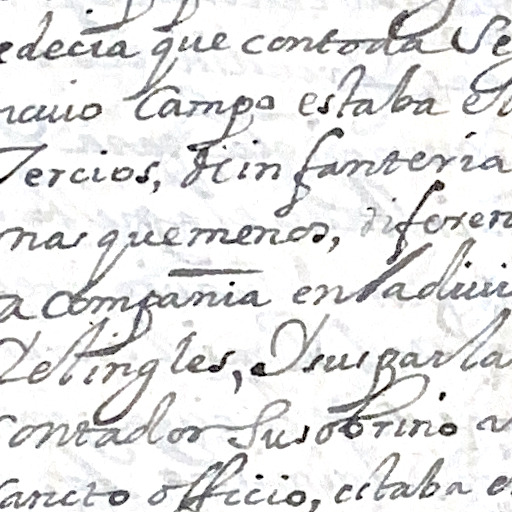 edecia que contoda Se
nauio Campo estaba el
Tercios, de infanteria
mas que menos, diferen
a compania en la diui
del ingles, Y su parla
contador Su sobrino v
sancto officio, estaba e